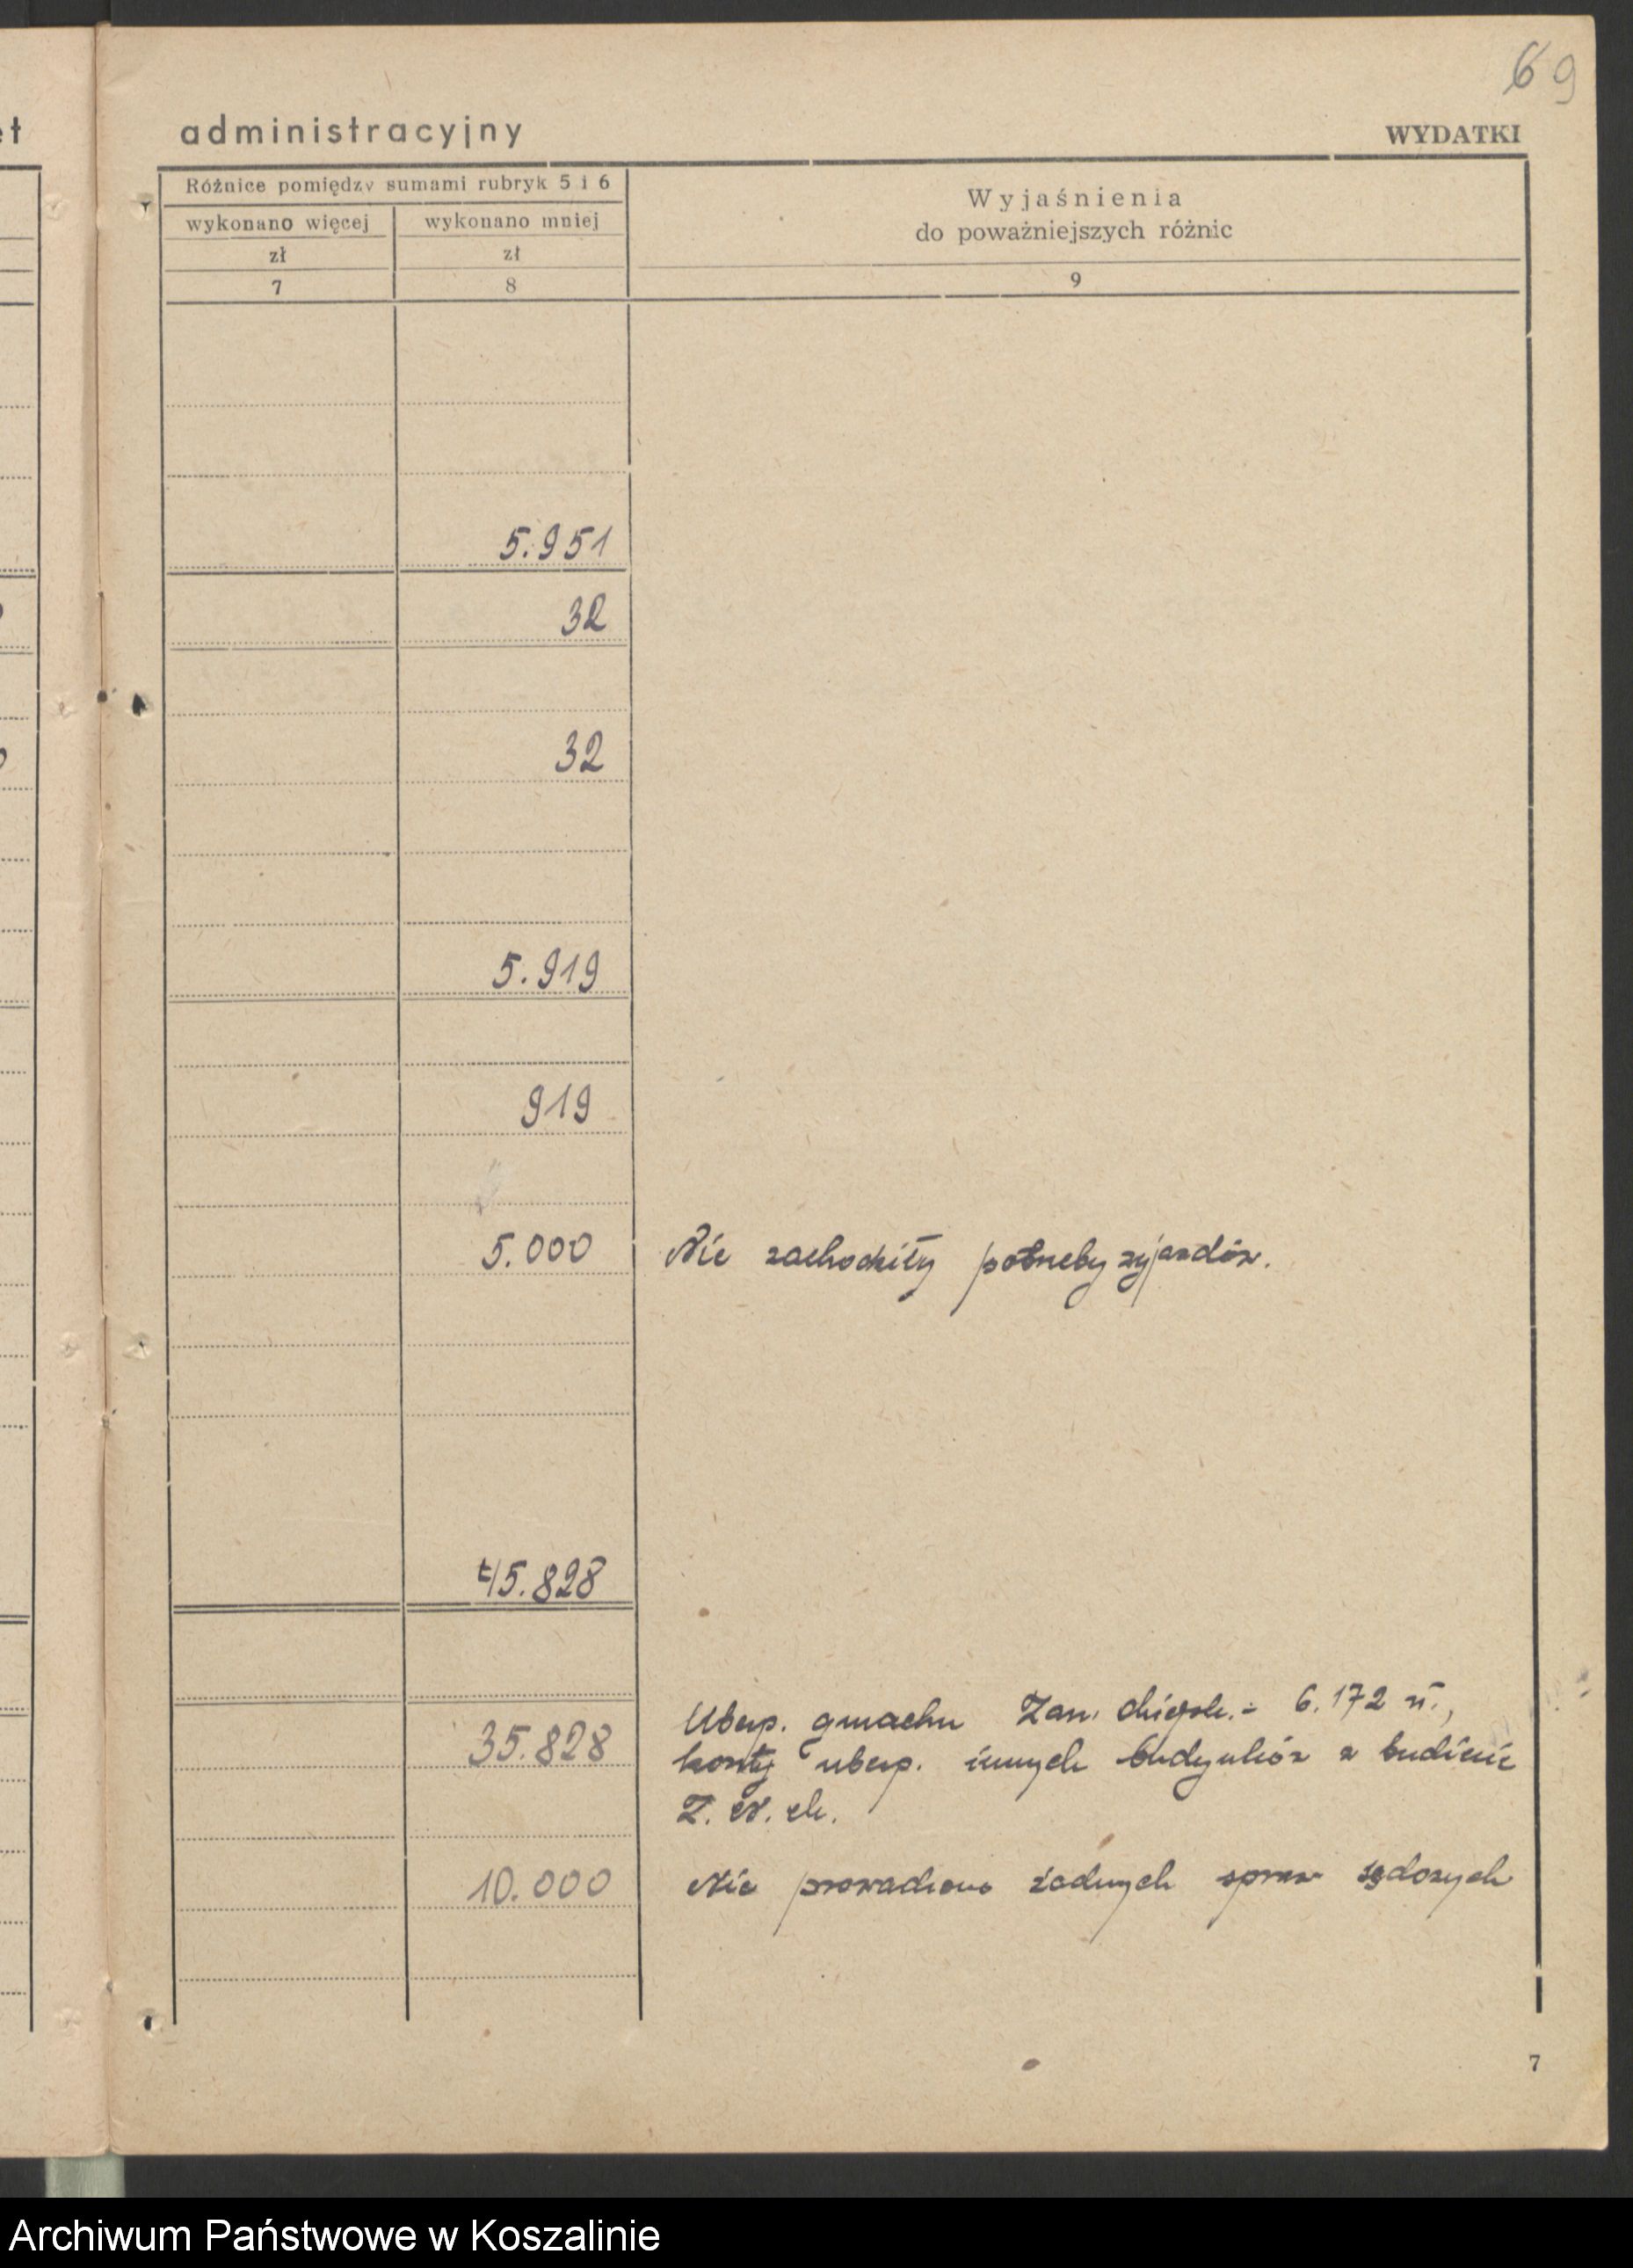 69
et administracyjny WYDATKI
Różnice pomiędzy sumami rubryk 5 i 6
wykonano więcej wykonano mniej
zł zł
7 8
Wyjaśnienia
do poważniejszych różnic
9
5.951
32
32
5.919
919
5.000 Nie zachodziły potrzeby zjazdów.
45.828
Ubezp. gmachu Zarz. 6.172 zł.,
35.828 koszty ubezp. innych budynków w budżecie
Z. N. ch.
10.000 Nie prowadzono żadnych spraw sądowych
7
Archiwum Państwowe w Koszalinie